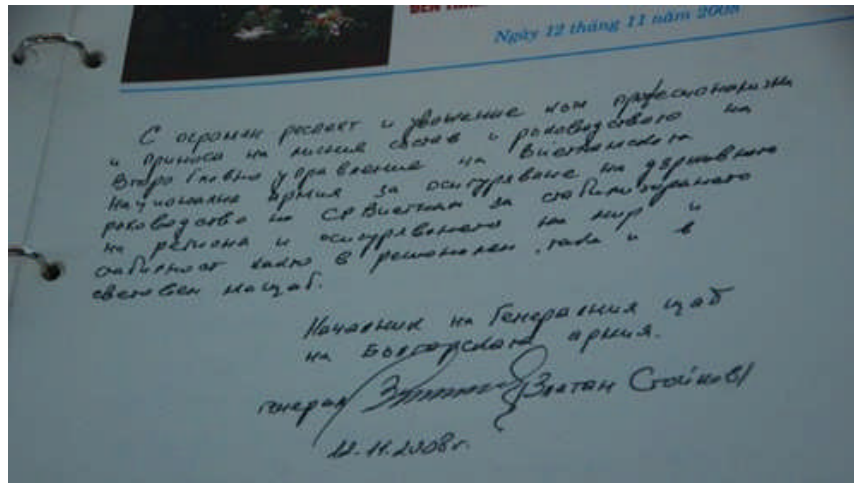 Ngày 12 tháng 11 năm 2008
С огромен респект и уважение към професионализма
и приноса на личния състав и ръководството на
Второ Главно управление на Виетнамската
Национална армия за осигуряване на държавното
ръководство на СР Виетнам за стабилизирането
на региона и осигуряването на мир и
стабилност както в регионален, така и в
световен мащаб.
Началник на Генералния щаб
на Българската армия.
генерал Златан Стойков
12.11.2008г.